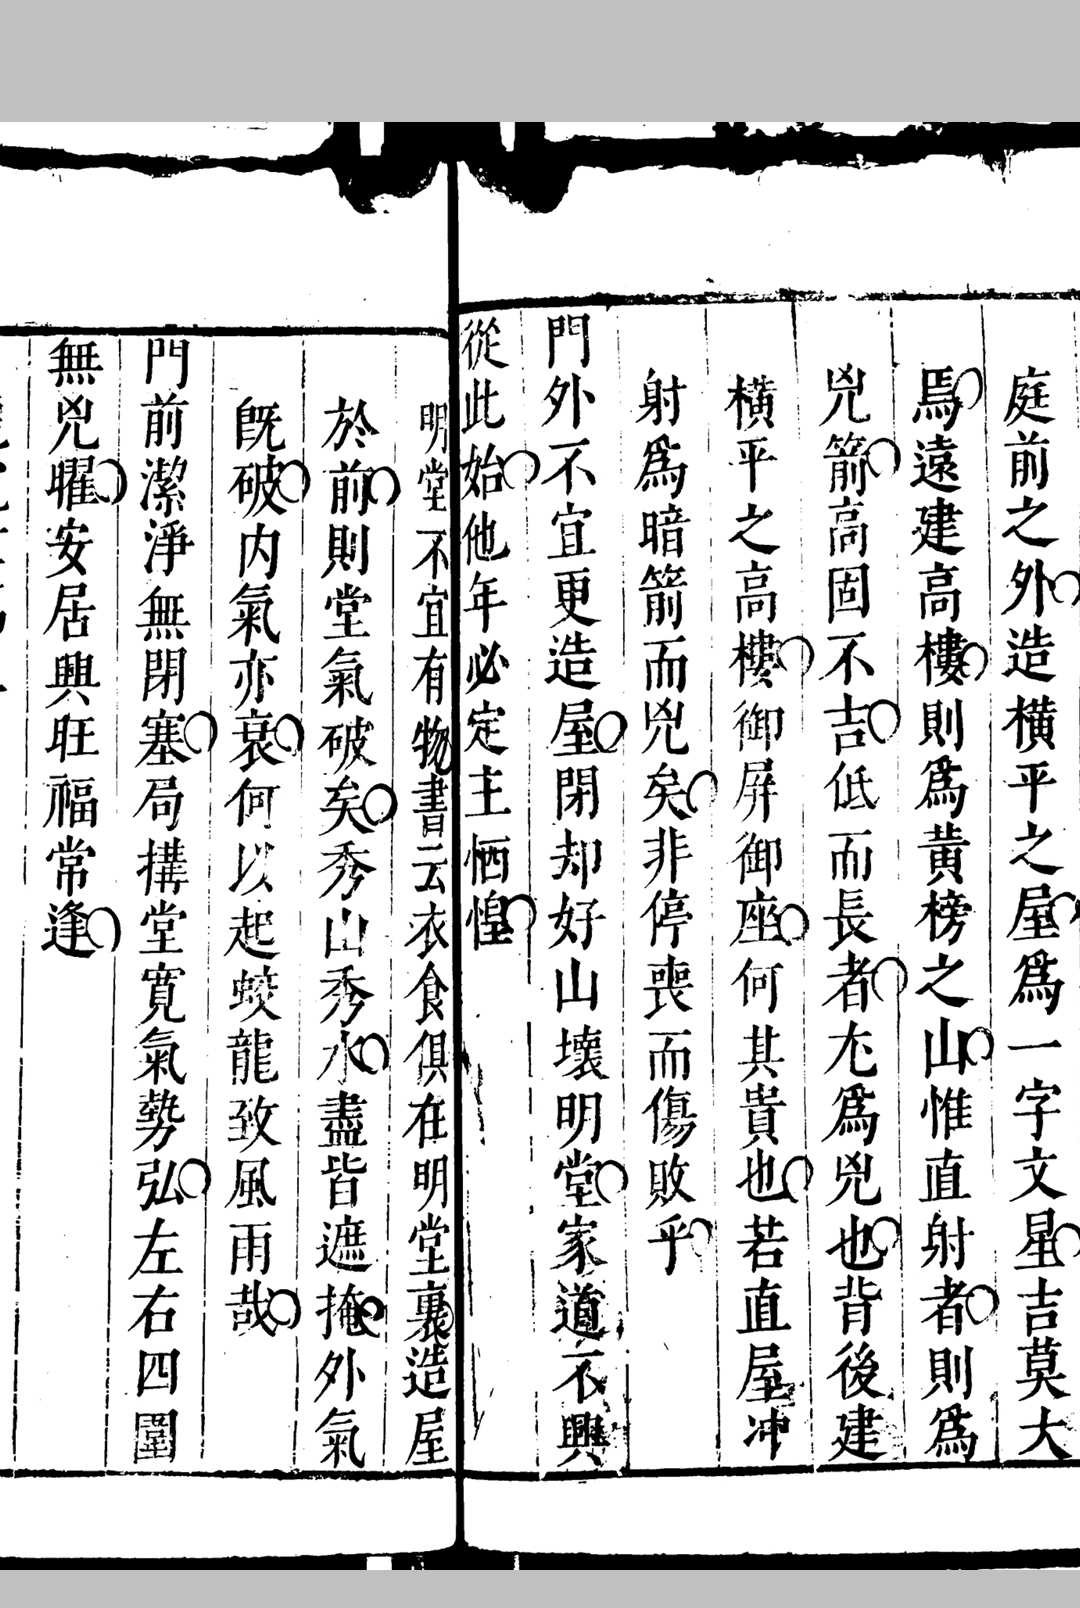 庭前之外造橫平之屋爲一字文星吉莫大
焉遠建高樓則爲黃榜之山惟直射者則爲
兇箭高固不吉低而長者尤爲兇也背後建
橫平之高樓御屏御座何其貴也若直屋冲
射爲暗箭而兇矣非停喪而傷敗乎
門外不宜更造屋閉却好山壞明堂家道不興
從此始他年必定主恓惶
明堂不宜有物書云衣食俱在明堂裏造屋
於前則堂氣破矣秀山秀水盡皆遮掩外氣
旣破内氣亦衰何以起蛟龍致風雨哉
門前潔淨無閉塞局搆堂寬氣勢弘左右四圍
無兇曜安居興旺福常逢